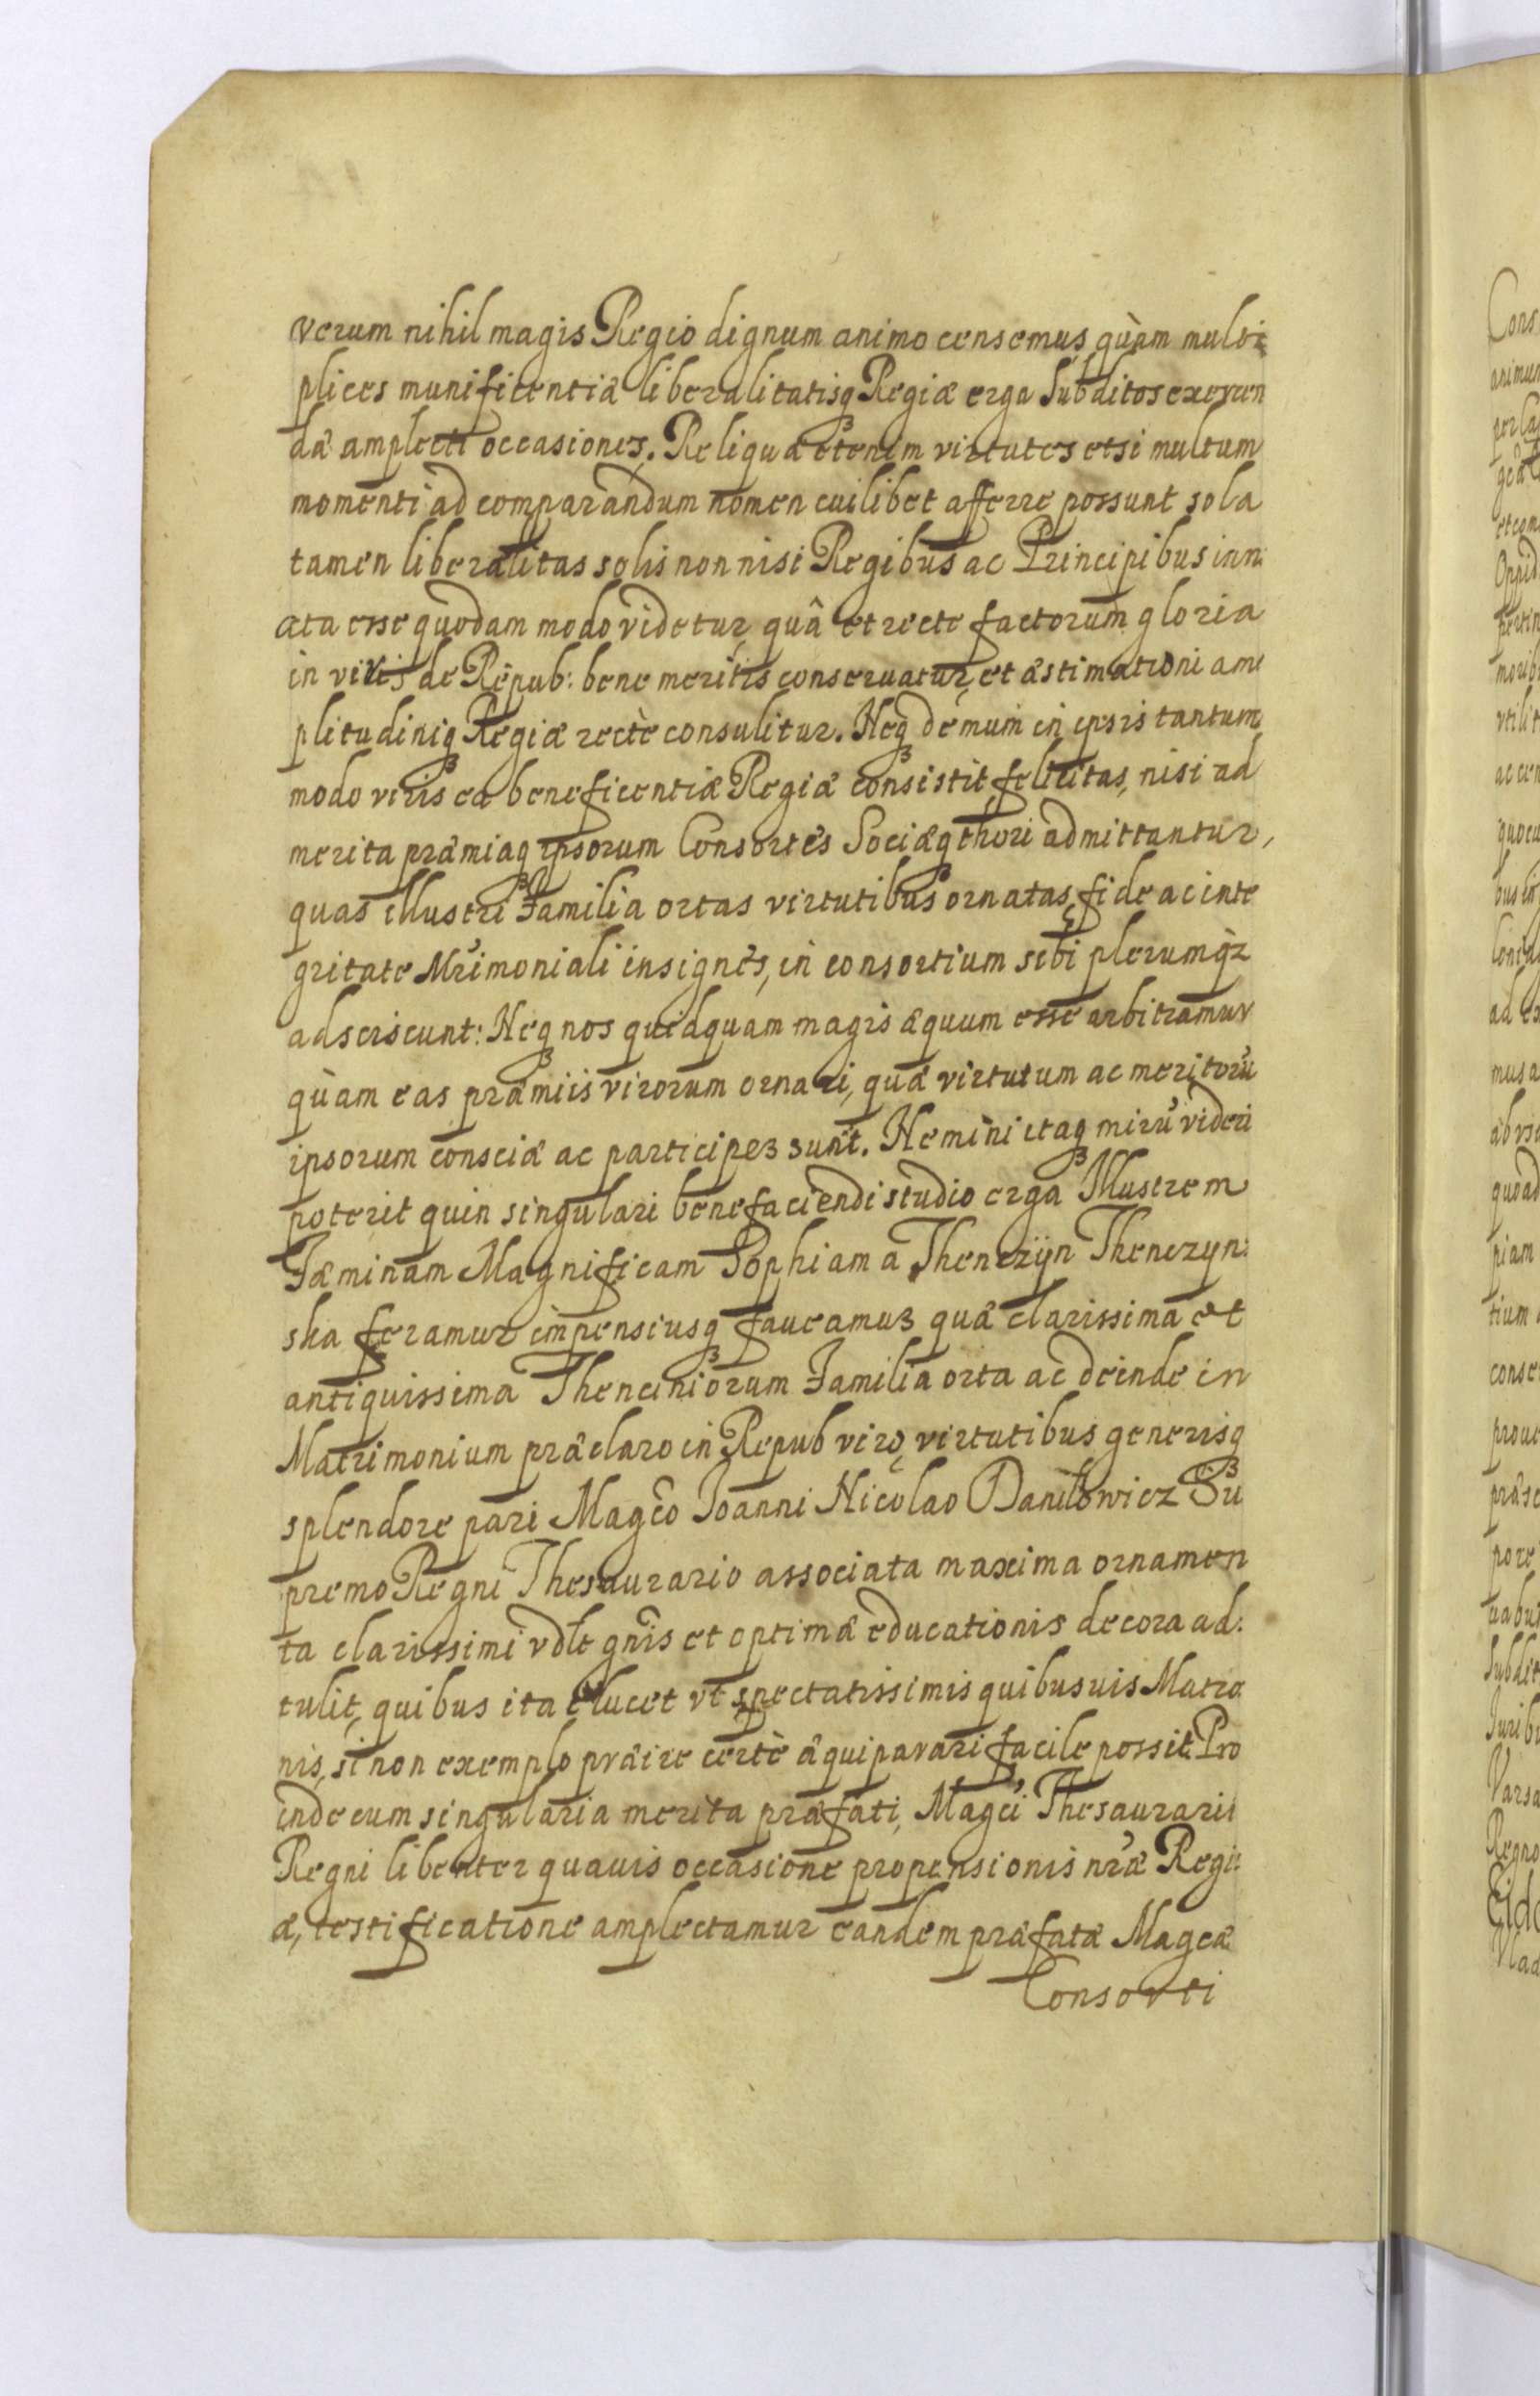 verum nihil magis Regio dignum animo censemus, quàm multi
plices munificentiæ liberalitatisq3 Regiæ erga Subditos exeren
dæ amplecti occasiones. Reliquæ etenim virtutes etsi multum
momenti ad comparandum nomen cuilibet afferre possunt sola
tamen liberalitas solis non nisi Regibus ac Principibus inn:
ata esse quodam modo videtur, quâ et recte factorum gloria
in viris de Repub: bene meritis conseruatur, et æstimationi am
plitudiniq3 Regiæ rectè consulitur. Neq3 demum in ipsis tantum
modo viris ea beneficentiæ Regiæ consistit felicitas, nisi ad
merita præmiaq3 ipsorum Consortes Sociæq3 thori admittantur,
quas illustri Familia ortas virtutibus ornatas, fide ac inte
gritate Mr̃imoniali insignes, in consortium sibi plerumq3
adsciscunt: Neq3 nos quidquam magis æquum esse arbitramur
quàm eas præmiis virorum ornari, quæ virtutum ac meritorũ
ipsorum consciæ ac participes sunt. Nemini itaq3 mirũ videri
poterit quin singulari benefaciendi studio erga Illustrem
Fæminam Magnificam Sophiam a Thenczÿn Thenczyn:
ska feramur impensiusq3 faueamus quæ clarissima et
antiquissima Thenciniorum Familia orta ac deinde in
Matrimonium præclaro in Repub viro, virtutibus generisq3
splendore pari Magc̃o Joanni Nicolao Daniłowicz Su
premo Regni Thesaurario associata maxima ornamen
ta clarissimi vdlt gñis et optimæ educationis decora ad:
tulit, quibus ita elucet vt spectatissimis quibusuis Matro
nis, si non exemplo præire certè æquiparari facile possit. Pro
inde cum singularia merita præfati, Magc̃i Thesaurarii
Regni libenter quauis occasione propensionis nr̃æ Regi:
æ, testificatione amplectamur eandem præfatæ Magcæ
Consorti